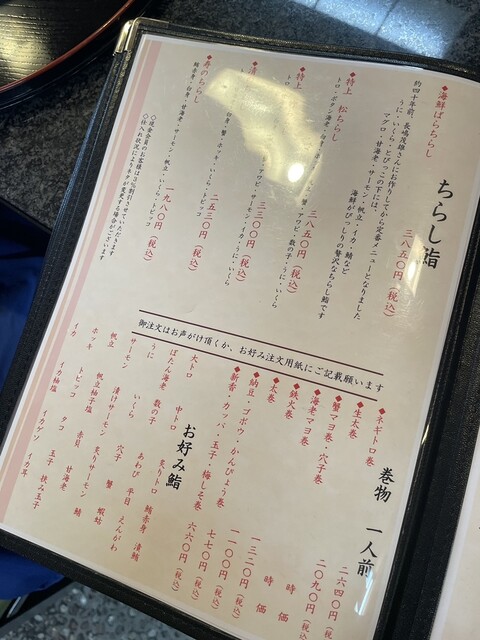 ちらし鮨
◆海鮮ばらちらし 三八五〇円(税込)
約四十年前、長嶋茂雄さんにお作りしてから定番メニューとなりました
うに・いくら・とびっこの下には、
マグロ・甘海老・サーモン・帆立・イカ・鯖など
海鮮がびっしりの贅沢なちらし鮨です
◆特上 松ちらし 三八五〇円(税込)
トロ・ボタン海老・
蟹・アワビ・数の子・うに・いくら
◆特上 三三〇〇円(税込)
アワビ・サーモン・イカ・うに・いくら
二五三〇円(税込)
白身・蟹・ホッキ・いくら・トビッコ
◆寿のちらし 一九八〇円(税込)
鮪赤身・白身・甘海老・サーモン・帆立・いくら・トビッコ
〇現金会員のお客様は3%割引させていただきます
〇仕入れ状況によりネタが変更する場合がございます
御注文はお声がけ頂くか、お好み注文用紙にご記載願います
巻物 一人前
◆ネギトロ巻 二六四〇円(税込)
◆生太巻 二〇九〇円(税込)
◆蟹マヨ巻・穴子巻
◆海老マヨ巻 時価
◆鉄火巻 時価
◆太巻 一三二〇円(税込)
◆納豆・ゴボウ・かんぴょう巻 一一〇〇円(税込)
◆新香・カッパ・玉子・梅しそ巻 七七〇円(税込)
六六〇円(税込)
お好み鮨
大トロ 中トロ 炙りトロ 鮪赤身 漬鮪
ぼたん海老 数の子 あわび 平目 えんがわ
うに いくら 穴子 蟹 蝦蛄
サーモン 漬けサーモン 炙りサーモン 鯵
帆立 帆立柚子塩 赤貝 甘海老
ホッキ トビッコ タコ 玉子 挟み玉子
イカ イカ柚塩 イカゲソ イカ耳